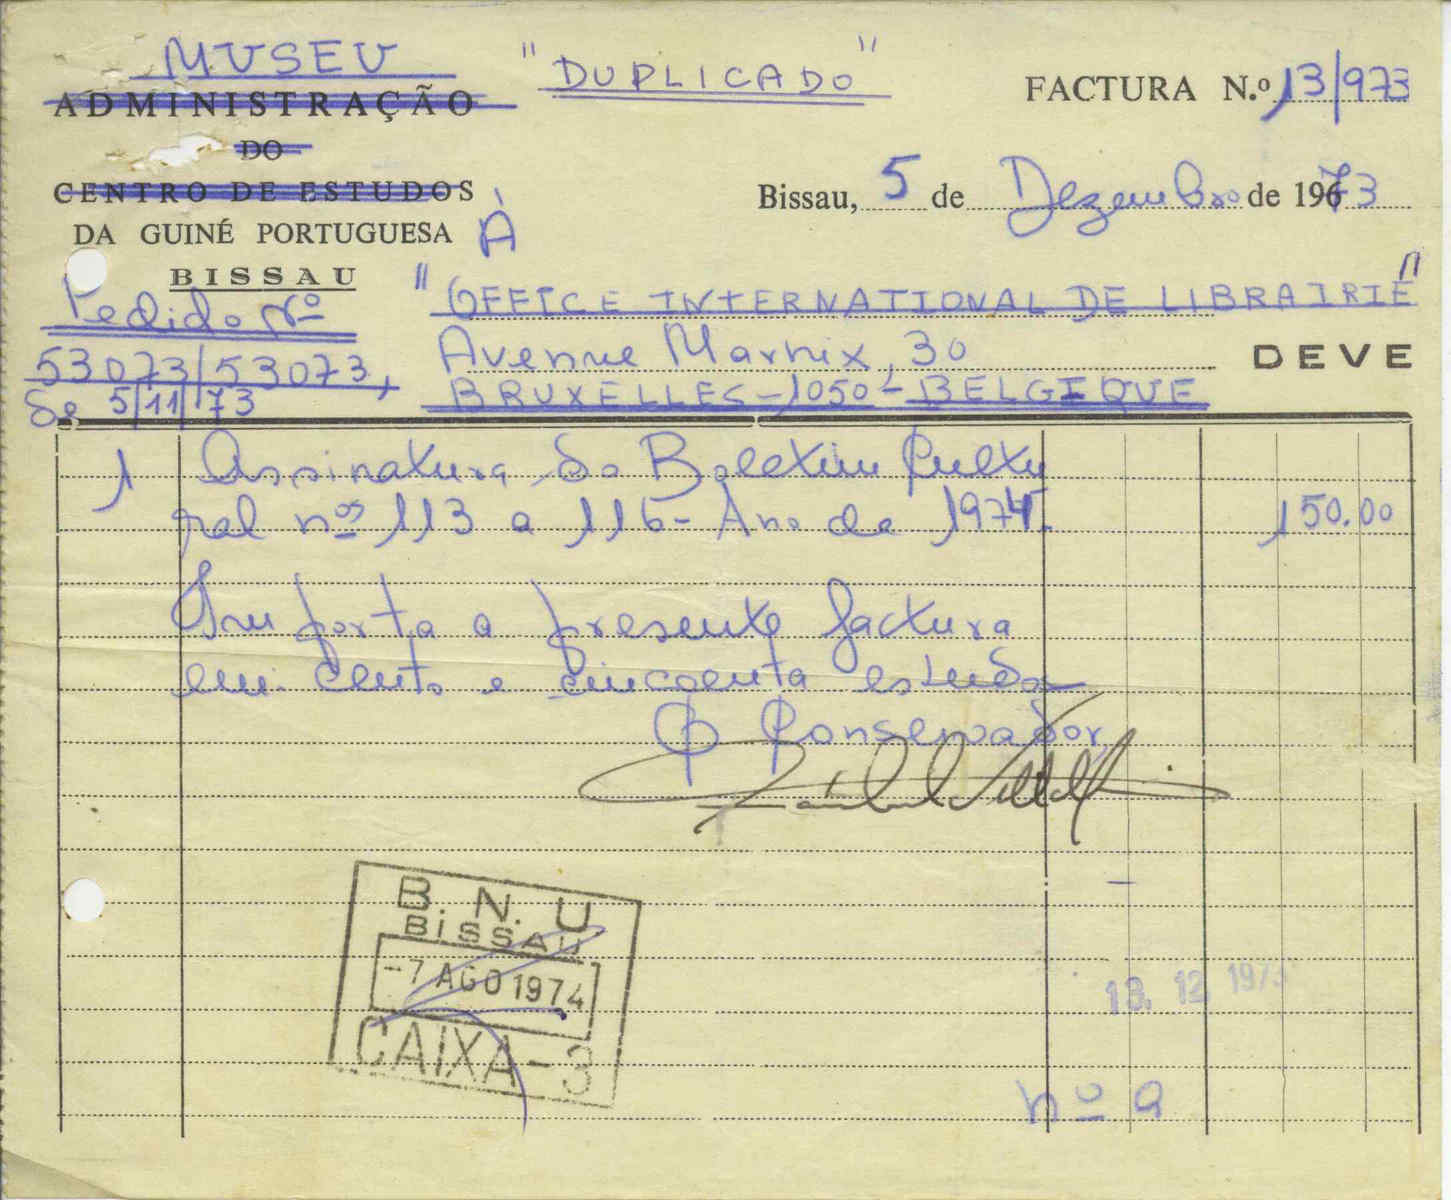 MUSEU
"DUPLICADO"
FACTURA N.º 13/973
ADMINISTRAÇÃO
DO
CENTRO DE ESTUDOS
DA GUINÉ PORTUGUESA
BISSAU
Bissau, 5 de Dezembro de 1973
À
"OFFICE INTERNATIONAL DE LIBRAIRIE"
Pedido Nº
53073/53073,
de 5/11/73
Avenue Marnix, 30
DEVE
BRUXELLES-1050-BELGIQUE
1 Assinatura do Boletim Cultu
ral nºs 113 a 116-Ano de 1974. 150.00
Importa a presente factura
em cento e cincoenta escudos
O Conservador,
B. N. U.
BISSAU
-7 AGO 1974
CAIXA-3
13. 12 1973
nº a